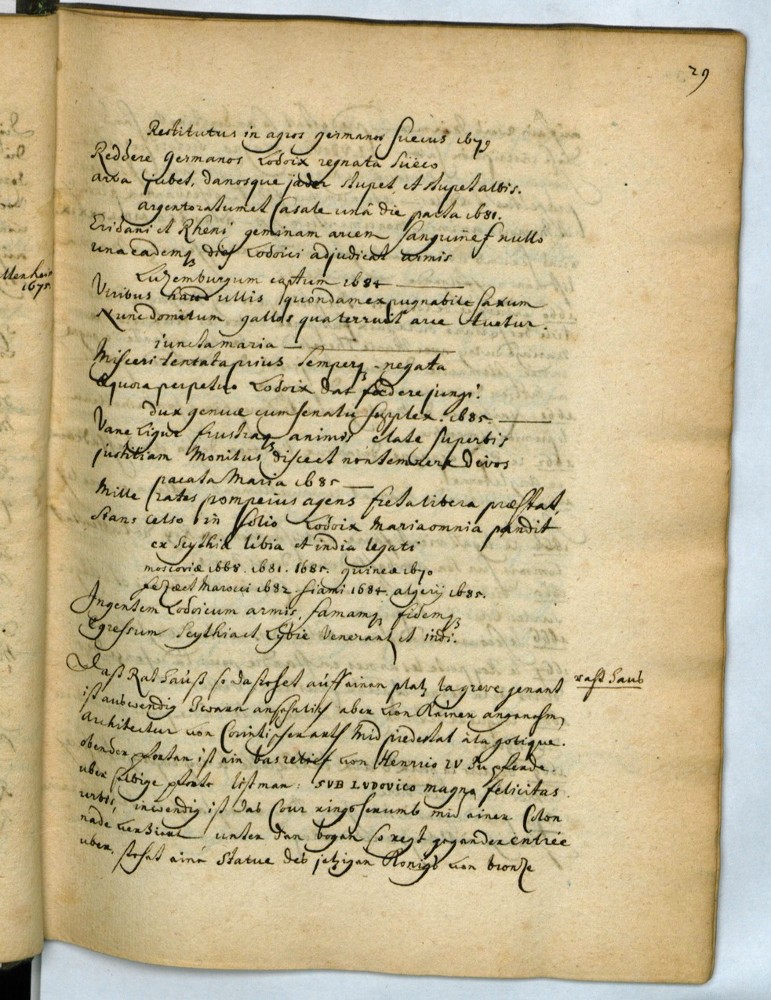 29
Restitutus in agros germanos suecus 1679
Reddere Germanos Lodoix regnata sueco
arva jubet, danosque stupet et stupet albis.
argentoratum et Casale unâ die parta 1681.
Eridani et Rheni geminam arcem sanguine nullo
una eademq dies Lodoici adjudicat armis
Luxemburgum captum 1684
Viribus haud ullis quondam expugnabile saxum
Nunc domitum gallos qua terruit arce tuetur.
iuncta maria
Misceri tentata prius semperq negata
Æquora perpetuo Lodoix dat fœdere jungi.
dux genuæ cum senatu supplex. 1685
Vane Ligur frustraq animis elate superbis
justitiam monitus disce et non temnere divos
pacata Maria 1685
Mille rates pompeius agens freta libera præstat,
stans celso in solio Lodoix maria omnia pandit
ex Scythia libia et india legati
moscoviæ 1668. 1681. 1685. guineæ 1670
fezæ et Marocci 1682. siami 1684. algerÿ 1685.
Ingentem Lodoicum armis, famamq fidemq
Egressum Scythia et Lybie Venerant et indi.
Daß Rathauß so da stehet auff einen platz la greve genant
raht haus
ist auswendig zwarn ansehnlich aber von kainer angenehm,
Architectur von Corintischer arth mid piedestal à la gotique.
oben der pforten ist ein bas relief von Henrrio IV zu pferde.
uber selbige pforte lißt man: SVB LVDOVICO magno felicitas
urbis, inwendig ist das Cour ringsherumb mid einer Colon
nade unter den bogen so regt gegen der entrée
uber. stehet eine statue des jetzigen Königs von bronze
Menhein
1675